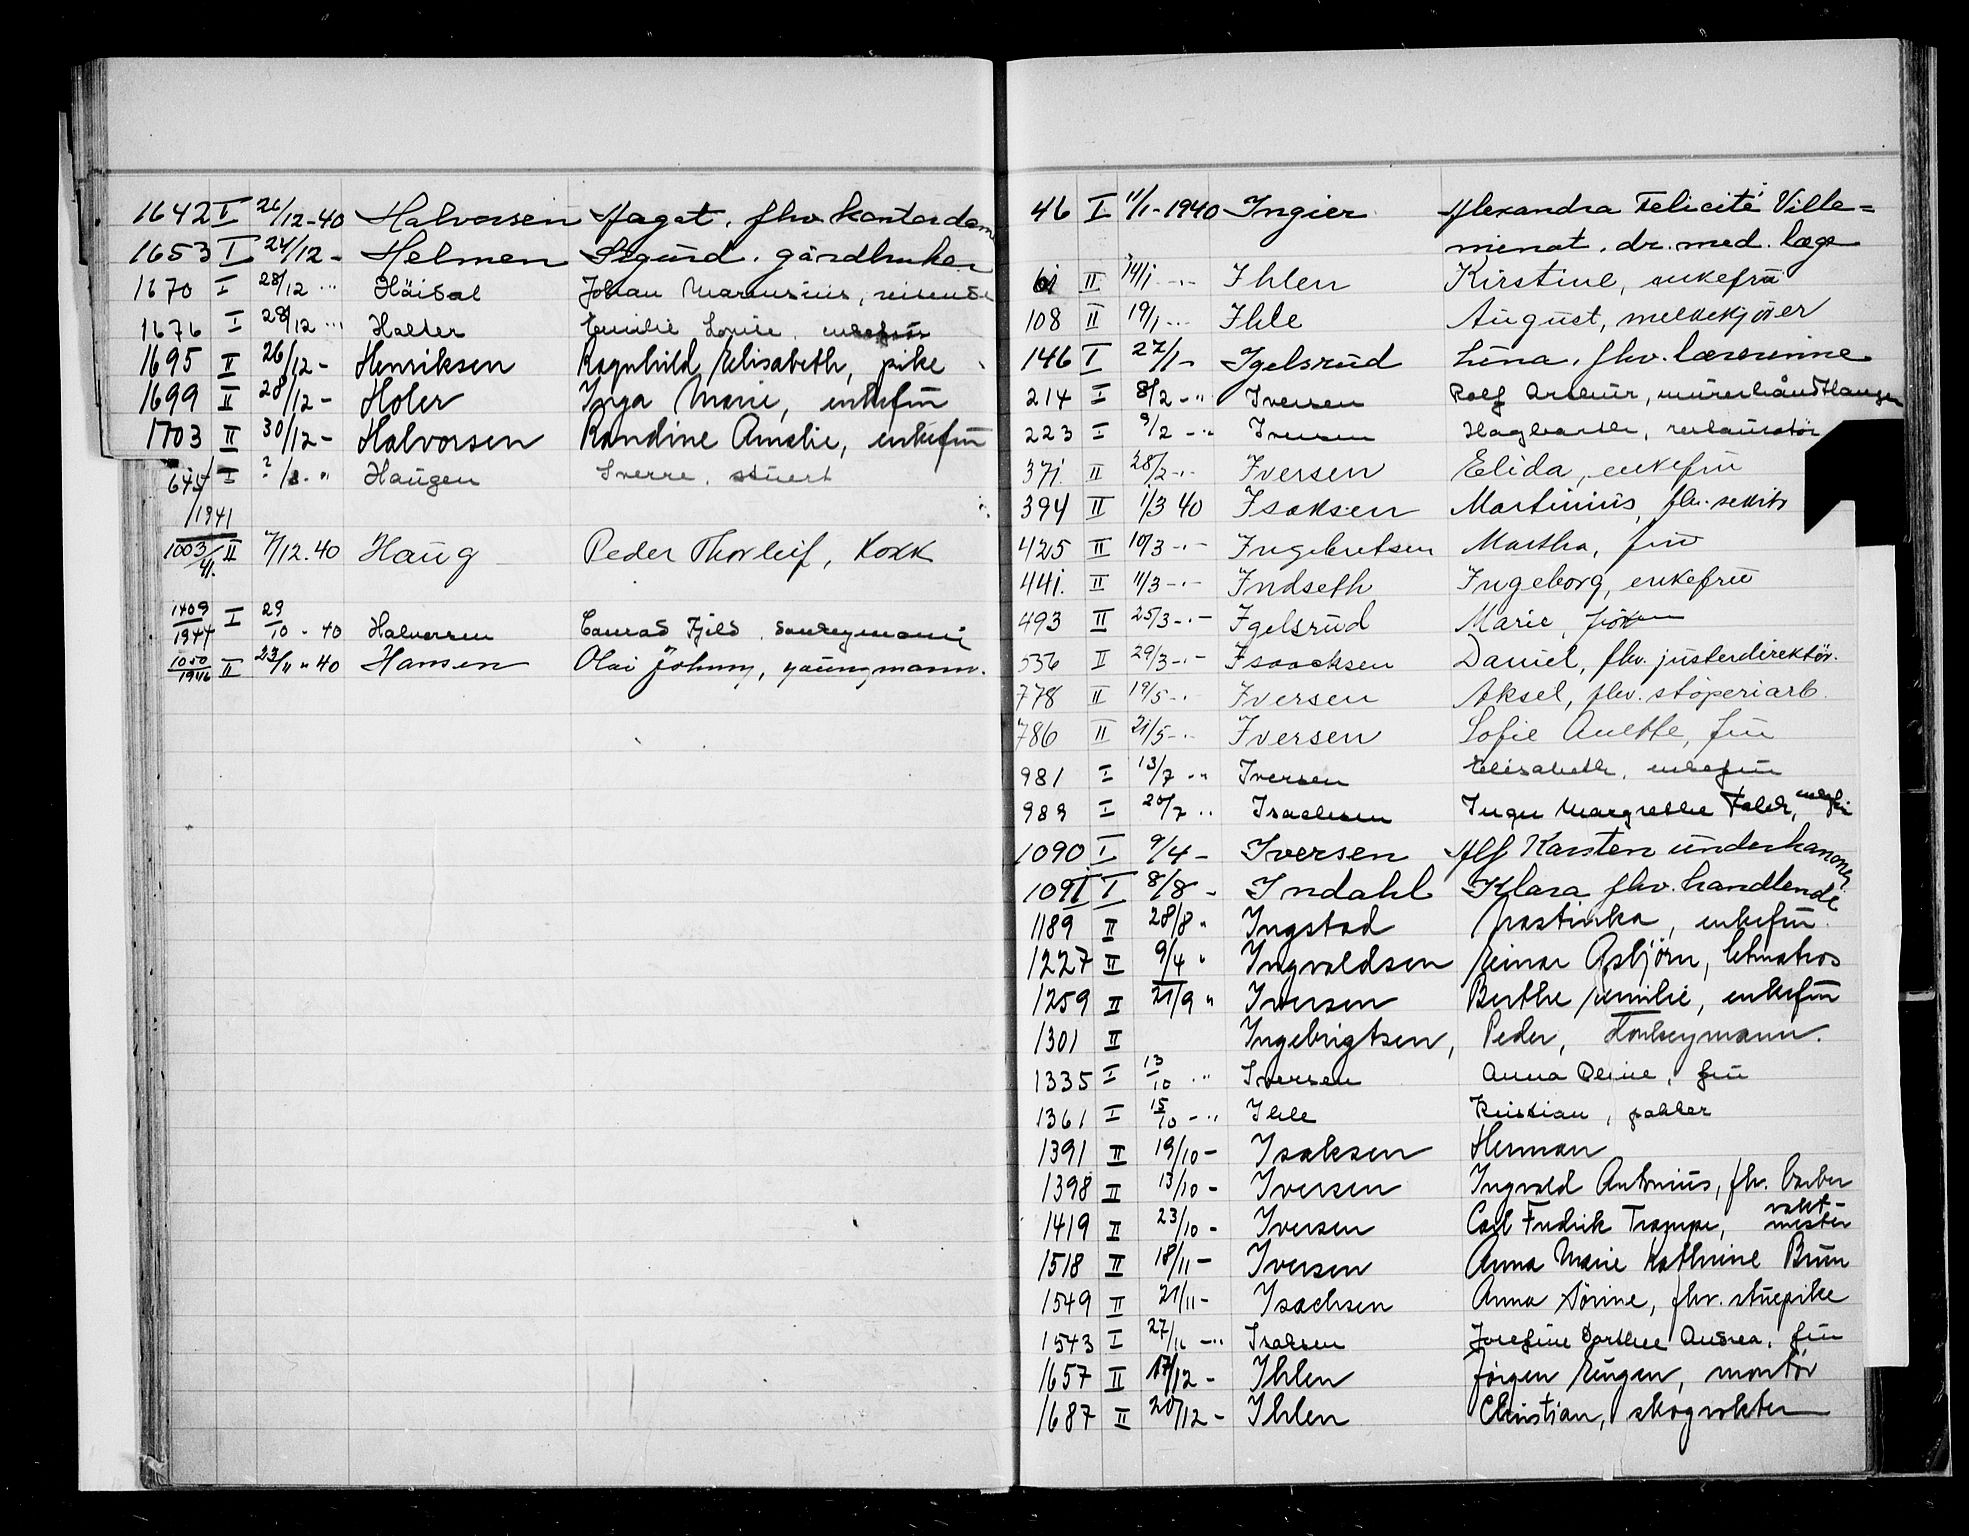 1642 I 26/12-40 Halvorsen Aagot. fhv. kontordame
1653 I 24/12 - Helmen Sigurd. gårdbruker
1670 I 28/12 ... Häisal Johan Marensius, reisende
1676 I 28/12 ... Halter Emilie Louise, enkefrue
1695 II 26/12 - Henriksen Ragnhild Elisabeth, pike
1699 II 28/12 - Holer Inga Marie, enkefru
1703 II 30/12 - Halvorsen Randine Amalie, enkefru
645/1941 I ?/8. " Haugen Sverre. stuert
1003/41. II 7/12.40 Haug Peder Thorleif, Kokk
1409/1944 I 29/10 - 40 Halvorsen Conrad Fjeld, donkeymann
1050/1946 II 23/11 " 40 Hansen Olai Johnny, youngmann.
46 I 11/1-1940 Ingier Alexandra Felicité Ville=
menat. dr. med. læge
61 II 14/1 -.- Ihlen Kirstine, enkefru
108 II 19/1 ... Ihle August, melkekjører
146 I 22/1- Igelsrud Lina, fhv. lærerinne
214 I 8/2 - " Iversen Rolf Arthur, murerhåndtlanger
223 I 9/2 - " Iversen Hagbarth, restauratør
371. II 28/2 -.- Iversen Elida, enkefru
394 II 1/3 40 Isaksen Martinius, fhv.
425 II 10/3 -.- Ingebretsen Martha, fru
441. II 11/3 -.- Indseth Ingeborg, enkefru
493 II 25/3 -.- Igelsrud Marie, frøken
536 II 29/3 -.- Isaacksen Daniel, fhv. justerdirektør.
778 II 19/5 -.- Iversen Aksel, fhv. støperiarb.
786 II 21/5 -.- Iversen Sofie Anette, fru
981 I 13/7 - " Iversen Elisabeth, enkefru
989 I 20/7 .. Isachsen Inger Margrethe Falch, enkefru
1090 I 9/4 - Iversen Alf Karsten underkanoner
1091 I 8/8 - Indahl Klara fhv. handlende
1189 II 28/8 " Ingstad Prastinka, enkefru.
1227 II 9/4 " Ingvaldsen Einar Asbjørn, lettmatros
1259 II 21/9 " Iversen Berthe Emilie, enkefru
1301 II Ingebrigtsen, Peder, Donkeymann.
1335 I 13/10 .. Iversen Anna Oline, fru
1361 I 15/10 - .. Ihle Kristian, pakker
1391 II 19/10 - Isaksen Herman
1398 II 13/10 - Iversen Ingvald Antonius, fhv. barber
1419 II 23/10 - Iversen Carl Fredrik Trampe, vakt-
mester
1518 II 18/11 - Iversen Anna Marie Kathrine Brun
1549 II 21/11 - Isachsen Anna Sørine, fhv. stuepike
1543 I 27/11 - .. Isaksen Josefine Dorthee Andrea, fru
1657 II 17/12 - Ihlen Jørgen Eugen, montør
1687 II 20/12 - Ihlen Christian, skogvokter